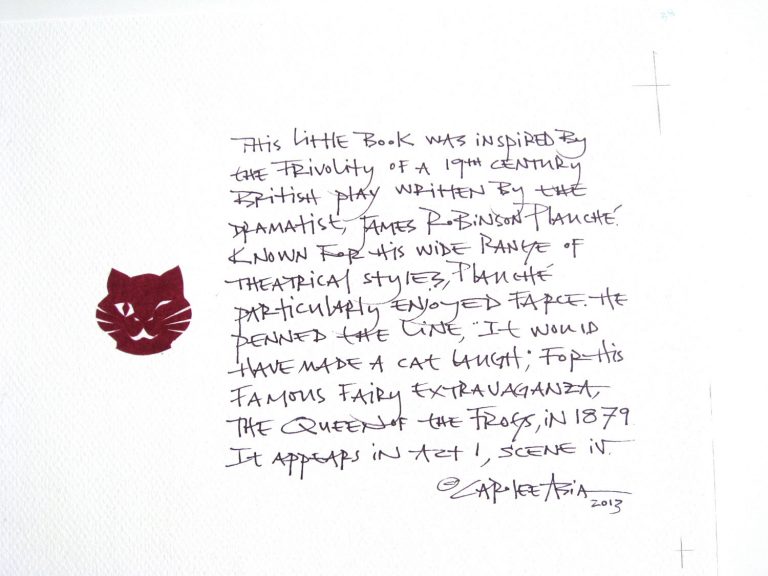 34
This little Book was inspired By
the Frivolity of a 19th century
British play written By the
dramatist, James Robinson Planché.
Known for his wide range of
theatrical styles, Planché
particularly enjoyed farce. He
penned the line, "It would
have made a cat laugh", for his
famous fairy extravaganza,
The Queen of the Frogs, in 1879.
It appears in Act 1, scene iv.
© Carolee Asia
2013